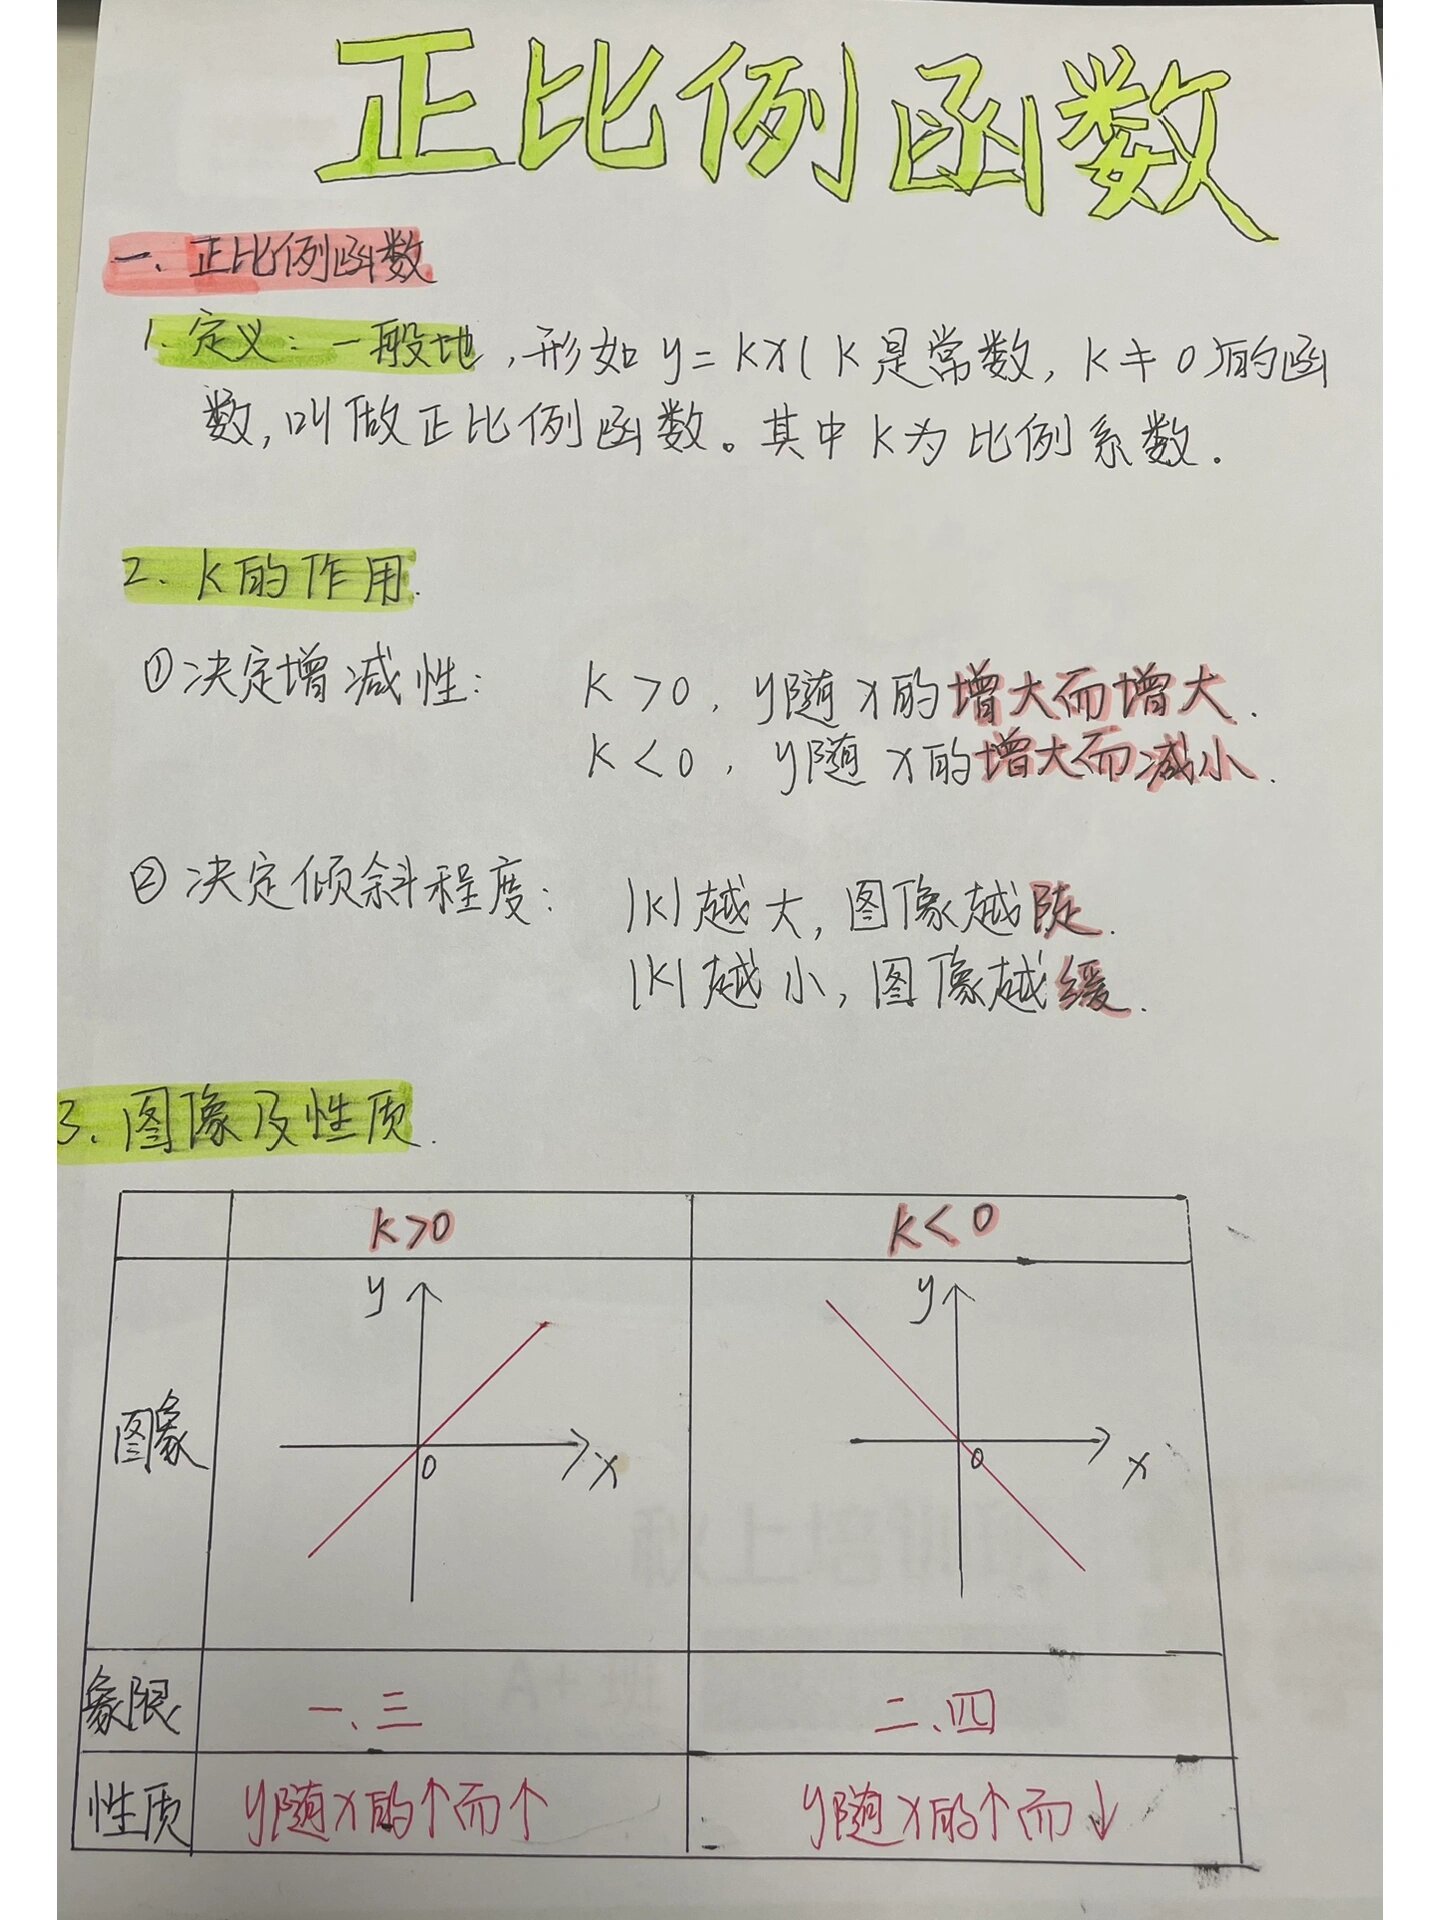 正比例函数
一、正比例函数
1. 定义：一般地，形如 y=kx(k是常数，k≠0)的函
数，叫做正比例函数。其中k为比例系数.
2. k的作用.
①决定增减性： k>0，y随x的增大而增大.
k<0，y随x的增大而减小.
②决定倾斜程度： |k|越大，图像越陡.
|k|越小，图像越缓.
3. 图像及性质.
k>0 k<0
y y
图象
0 x 0 x
象限 一、三 二、四
性质 y随x的↑而↑ y随x的↑而↓